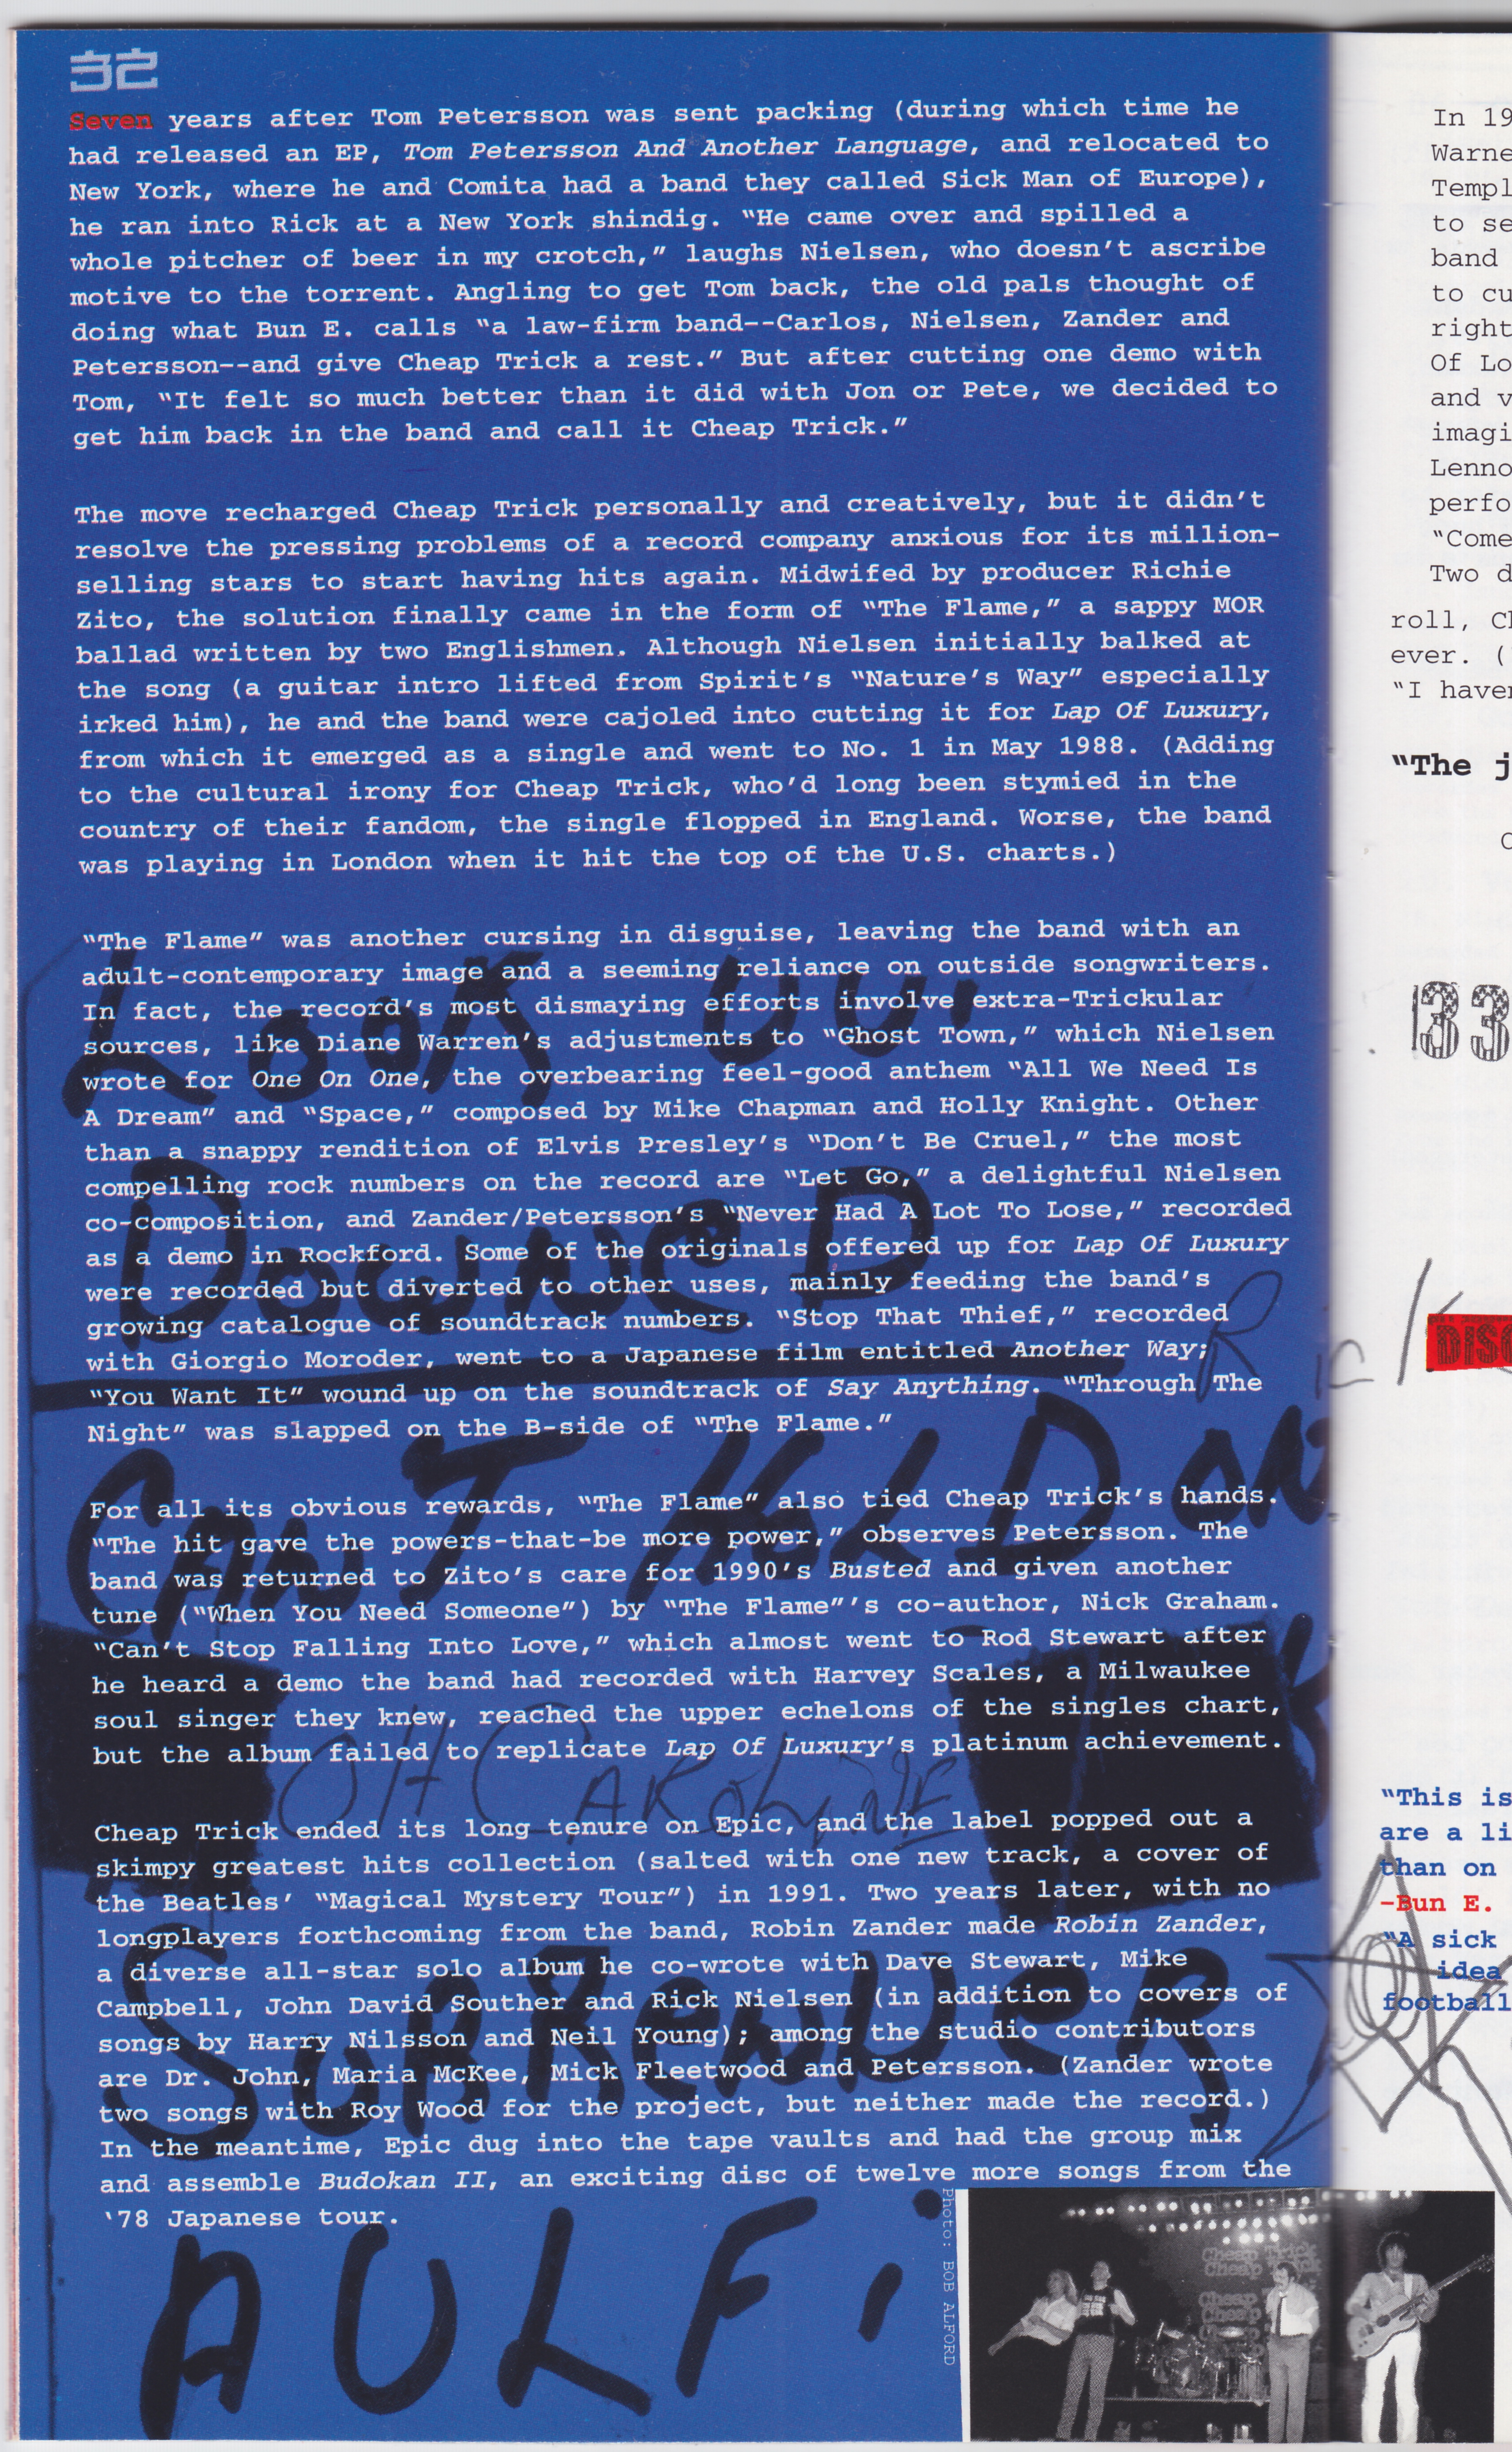 32
Seven years after Tom Petersson was sent packing (during which time he
had released an EP, Tom Petersson And Another Language, and relocated to
New York, where he and Comita had a band they called Sick Man of Europe),
he ran into Rick at a New York shindig. “He came over and spilled a
whole pitcher of beer in my crotch,” laughs Nielsen, who doesn’t ascribe
motive to the torrent. Angling to get Tom back, the old pals thought of
doing what Bun E. calls “a law-firm band--Carlos, Nielsen, Zander and
Petersson--and give Cheap Trick a rest.” But after cutting one demo with
Tom, “It felt so much better than it did with Jon or Pete, we decided to
get him back in the band and call it Cheap Trick.”
The move recharged Cheap Trick personally and creatively, but it didn’t
resolve the pressing problems of a record company anxious for its million-
selling stars to start having hits again. Midwifed by producer Richie
Zito, the solution finally came in the form of “The Flame,” a sappy MOR
ballad written by two Englishmen. Although Nielsen initially balked at
the song (a guitar intro lifted from Spirit’s “Nature’s Way” especially
irked him), he and the band were cajoled into cutting it for Lap Of Luxury,
from which it emerged as a single and went to No. 1 in May 1988. (Adding
to the cultural irony for Cheap Trick, who’d long been stymied in the
country of their fandom, the single flopped in England. Worse, the band
was playing in London when it hit the top of the U.S. charts.)
“The Flame” was another cursing in disguise, leaving the band with an
adult-contemporary image and a seeming reliance on outside songwriters.
In fact, the record’s most dismaying efforts involve extra-Trickular
sources, like Diane Warren’s adjustments to “Ghost Town,” which Nielsen
wrote for One On One, the overbearing feel-good anthem “All We Need Is
A Dream” and “Space,” composed by Mike Chapman and Holly Knight. Other
than a snappy rendition of Elvis Presley’s “Don’t Be Cruel,” the most
compelling rock numbers on the record are “Let Go,” a delightful Nielsen
co-composition, and Zander/Petersson’s “Never Had A Lot To Lose,” recorded
as a demo in Rockford. Some of the originals offered up for Lap Of Luxury
were recorded but diverted to other uses, mainly feeding the band’s
growing catalogue of soundtrack numbers. “Stop That Thief,” recorded
with Giorgio Moroder, went to a Japanese film entitled Another Way;
“You Want It” wound up on the soundtrack of Say Anything. “Through The
Night” was slapped on the B-side of “The Flame.”
For all its obvious rewards, “The Flame” also tied Cheap Trick’s hands.
“The hit gave the powers-that-be more power,” observes Petersson. The
band was returned to Zito’s care for 1990’s Busted and given another
tune (“When You Need Someone”) by “The Flame”’s co-author, Nick Graham.
“Can’t Stop Falling Into Love,” which almost went to Rod Stewart after
he heard a demo the band had recorded with Harvey Scales, a Milwaukee
soul singer they knew, reached the upper echelons of the singles chart,
but the album failed to replicate Lap Of Luxury’s platinum achievement.
Cheap Trick ended its long tenure on Epic, and the label popped out a
skimpy greatest hits collection (salted with one new track, a cover of
the Beatles’ “Magical Mystery Tour”) in 1991. Two years later, with no
longplayers forthcoming from the band, Robin Zander made Robin Zander,
a diverse all-star solo album he co-wrote with Dave Stewart, Mike
Campbell, John David Souther and Rick Nielsen (in addition to covers of
songs by Harry Nilsson and Neil Young); among the studio contributors
are Dr. John, Maria McKee, Mick Fleetwood and Petersson. (Zander wrote
two songs with Roy Wood for the project, but neither made the record.)
In the meantime, Epic dug into the tape vaults and had the group mix
and assemble Budokan II, an exciting disc of twelve more songs from the
‘78 Japanese tour.
Look
DowneD
CAn'T HoLD On
OH CAROLINE
SuRRendeR
AULF
Photo: BOB ALFORD
Cheap Trick
Cheap Trick
Cheap
Cheap
In 19
to se
band
to cu
right
Of Lo
and v
“Come
Two d
roll,
ever. (
“I
“The
33
“This is
are a
than on
-Bun E.
“A sick
idea
football